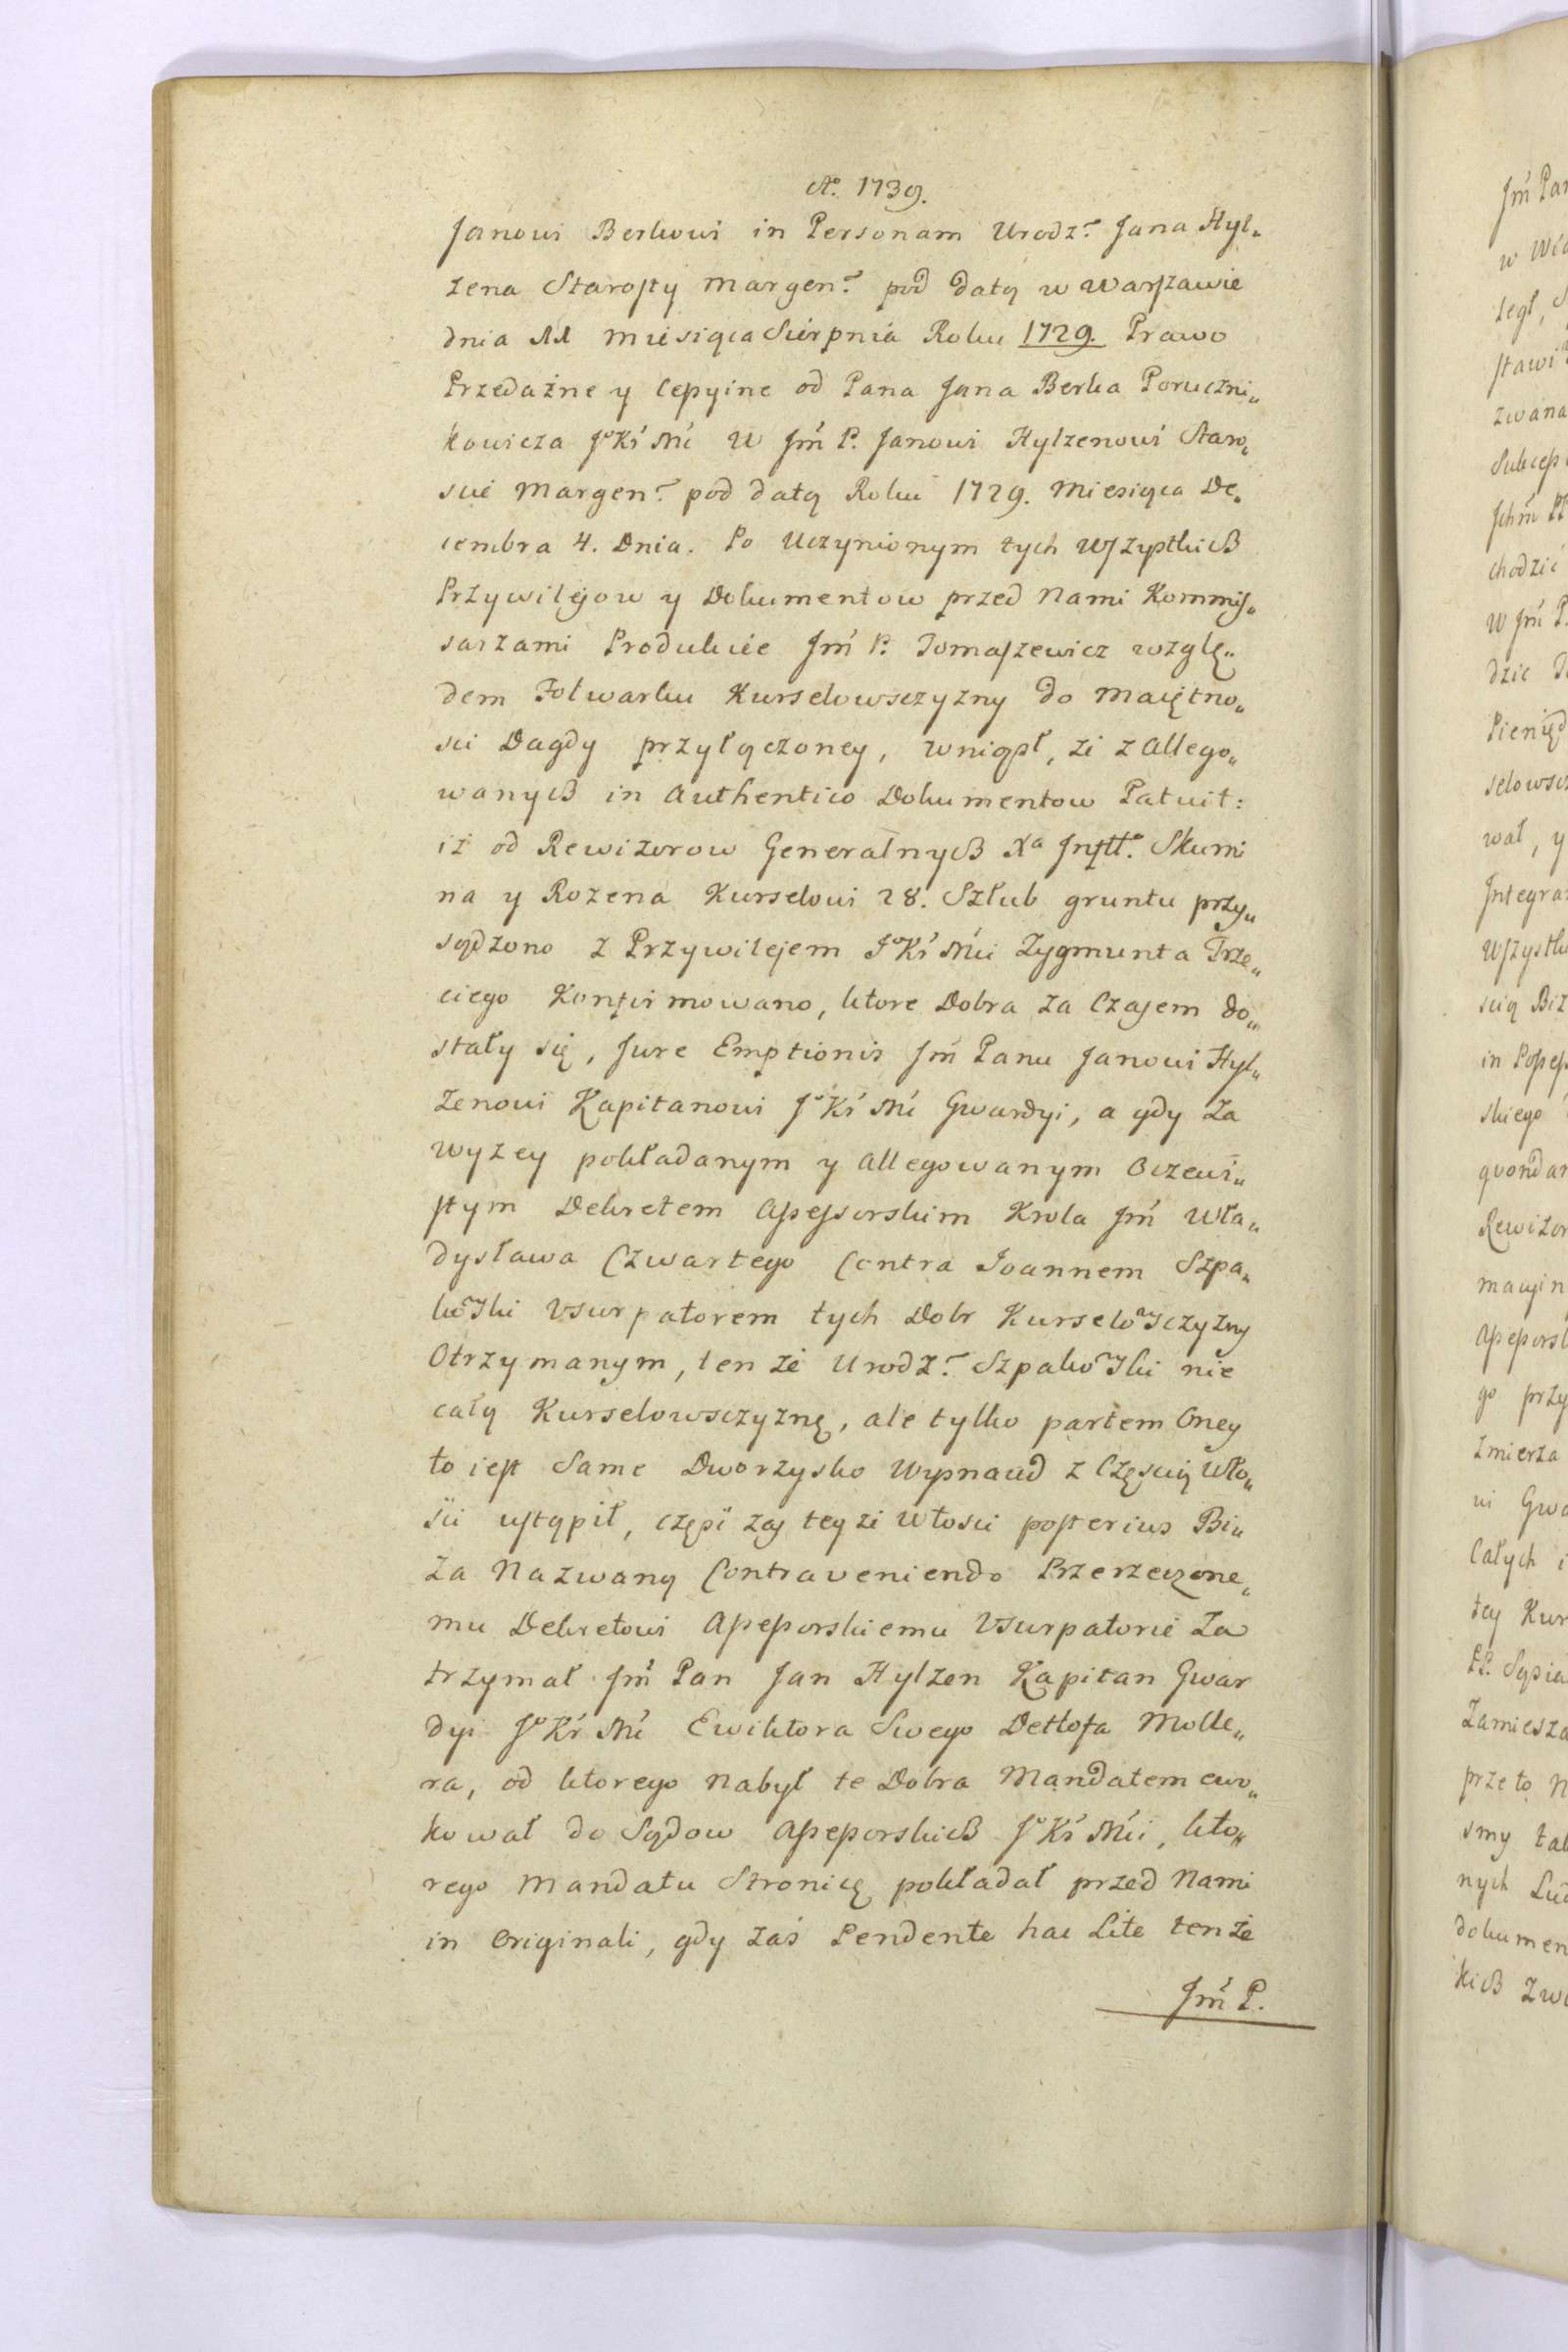 Ao. 1739.
Janowi Berkowi in Personam Urodz. Jana Hyl„
zena Starosty Margen. pod datą w Warszawie
dnia 11 Miesiąca Sierpnia Roku 1729. Prawo
Przedażne y Cessyine od Pana Jana Berka Poruczni„
kowicza JoKr Mci W Jm P. Janowi Hylzenowi Staro„
scie Margen. pod datą Roku 1729. Miesiąca De„
cembra 4. Dnia. Po Uczynionym tych Wszystkich
Przywilejow y Dokumentow przed Nami Kommis„
sarzami Produkcie Jm P. Tomaszewicz wzglę„
dem Folwarku Kurselowsczyzny do Maiętno„
sci Dagdy przyłączoney, wniosł, ze z Allego„
wanych in Authentico Dokumentow Patuit:
iż od Rewizorow Generalnych Xa Inflt. Skumi
na y Rozena Kurselowi 28. Szłub gruntu przy„
sądzono z Przywilejem JoKr Mci Zygmunta Trze„
ciego Konfirmowano, ktore Dobra za Czasem do„
stały się, Jure Emptionis Jm Panu Janowi Hyl„
zenowi Kapitanowi JoKr Mci Gwardyi, a gdy za
wyzey pokładanym y allegowanym Oczewi„
stym Dekretem Assessorskim Krola Jm Wła„
dysława Czwartego Contra Joannem Szpa„
kowski Usurpatorem tych Dobr Kurselowsczyzny
Otrzymanym, ten ze Urodz. Szpakowski nie
całą Kurselowsczyznę, ale tylko partem Oney
to iest Same Dworzysko Wypnaud z Częscią Wło„
sci ustąpił, częsc zas teyze Włosci posterius Bi„
za Nazwaną Contraveniendo Przerzeczone„
mu Dekretowi Assessorskiemu Usurpatorie Za
trzymał Jm Pan Jan Hylzen Kapitan Gwar
dyi JoKr Mci Ewiktora Swego Detlofa Molle„
ra, od ktorego Nabył te Dobra Mandatem ewo„
kował do Sądow Assessorskich JoKr Mci, kto„
rego Mandatu Stronicę pokładał przed Nami
in Originali, gdy zaś Pendente hac Lite tenże
Jm P.